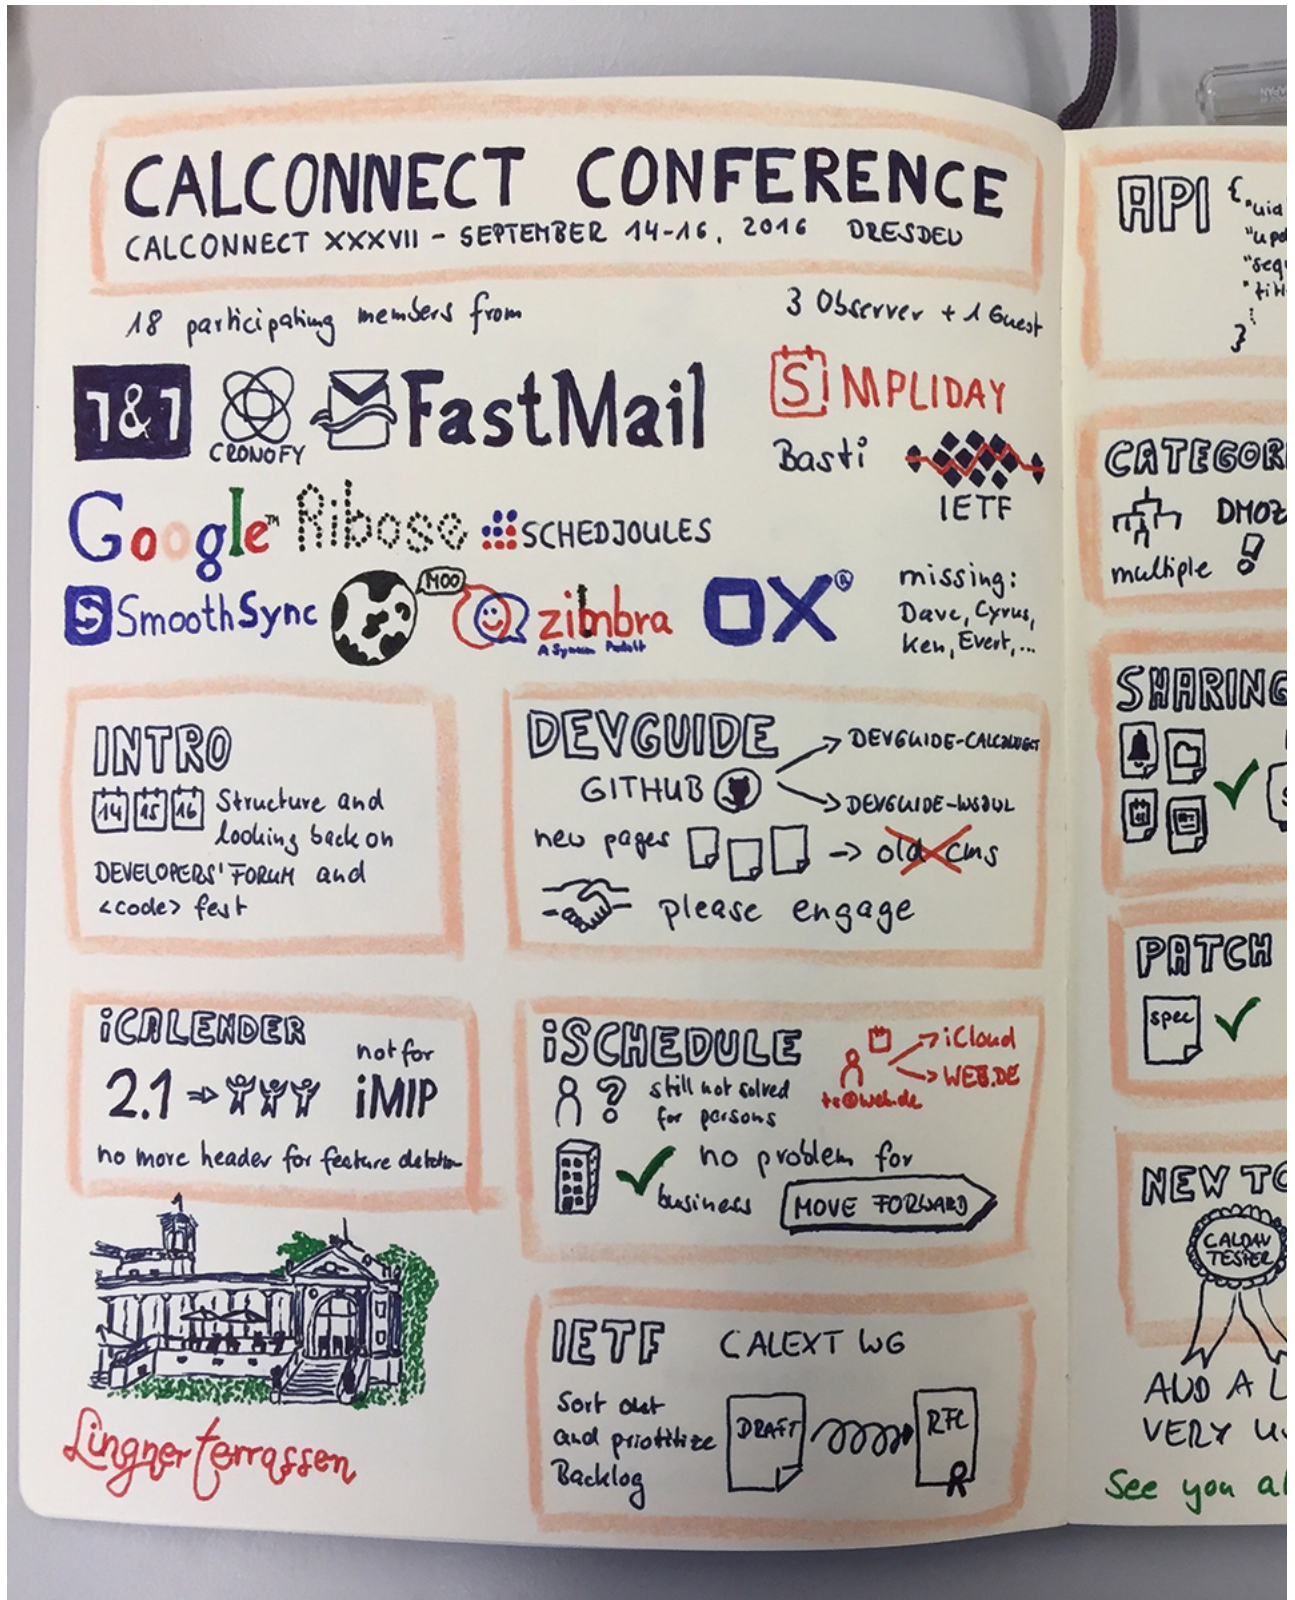 CALCONNECT CONFERENCE
CALCONNECT XXXVII - SEPTEMBER 14-16, 2016 DRESDEN
18 participating members from
3 Observer + 1 Guest
1&1
CRONOFY
FastMail
SIMPLIDAY
Basti
IETF
Google™
Ribose
SCHEDJOULES
SmoothSync
MOO
zimbra
OX®
missing:
Dave, Cyrus,
Ken, Evert,...
INTRO
14 15 16 Structure and
looking back on
DEVELOPERS' FORUM and
<code> fest
DEVGUIDE
GITHUB
DEVGUIDE-CALCONNECT
DEVGUIDE-WSDUL
new pages -> old cms
please engage
iCALENDER
2.1 ⇒ not for
iMIP
no more header for feature detection
iSCHEDULE
? still not solved
for persons
→ iCloud
→ WEB.DE
✓ no problem for
business
MOVE FORWARD
Lingnerterrassen
IETF CALEXT WG
Sort out
and priotitize
Backlog
DRAFT
RFC
API {
"uid
"upd
"seq
"tit
⋮
}
CATEGOR
DMOZ
multiple
SHARING
PATCH
spec ✓
NEW TO
CALDAV
TESTER
AND A L
VERY
See you a